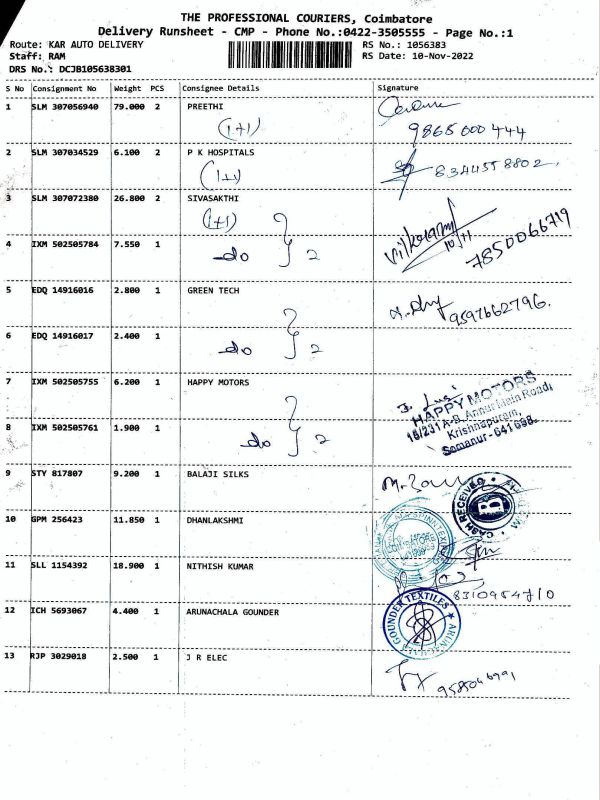 THE PROFESSIONAL COURIERS, Coimbatore
Delivery Runsheet - CMP - Phone No.:0422-3505555 - Page No.:1
Route: KAR AUTO DELIVERY RS No.: 1056383
Staff: RAM RS Date: 10-Nov-2022
DRS No.: DCJB105638301
S No Consignment No Weight PCS Consignee Details Signature
1 SLM 307056940 79.000 2 PREETHI
(1+1) 9865 000 444
2 SLM 307034529 6.100 2 P K HOSPITALS
(1+1) 8344558802
3 SLM 307072380 26.800 2 SIVASAKTHI
(1+1)
4 IXM 502505784 7.550 1 10/11 7850066719
do 2
5 EDQ 14916016 2.800 1 GREEN TECH
9597662796.
6 EDQ 14916017 2.400 1
do 2
7 IXM 502505755 6.200 1 HAPPY MOTORS
HAPPY MOTORS
16/231 A-B, Annur Main Road,
Krishnapuram,
Somanur - 641 668.
8 IXM 502505761 1.900 1
do 2
9 STY 817807 9.200 1 BALAJI SILKS
CASH RECEIVED
B
10 GPM 256423 11.850 1 DHANLAKSHMI
COIMBATORE
11 SLL 1154392 18.900 1 NITHISH KUMAR
12 ICH 5693067 4.400 1 ARUNACHALA GOUNDER
ARUNACHALA GOUNDER TEXTILES
13 RJP 3029018 2.500 1 J R ELEC